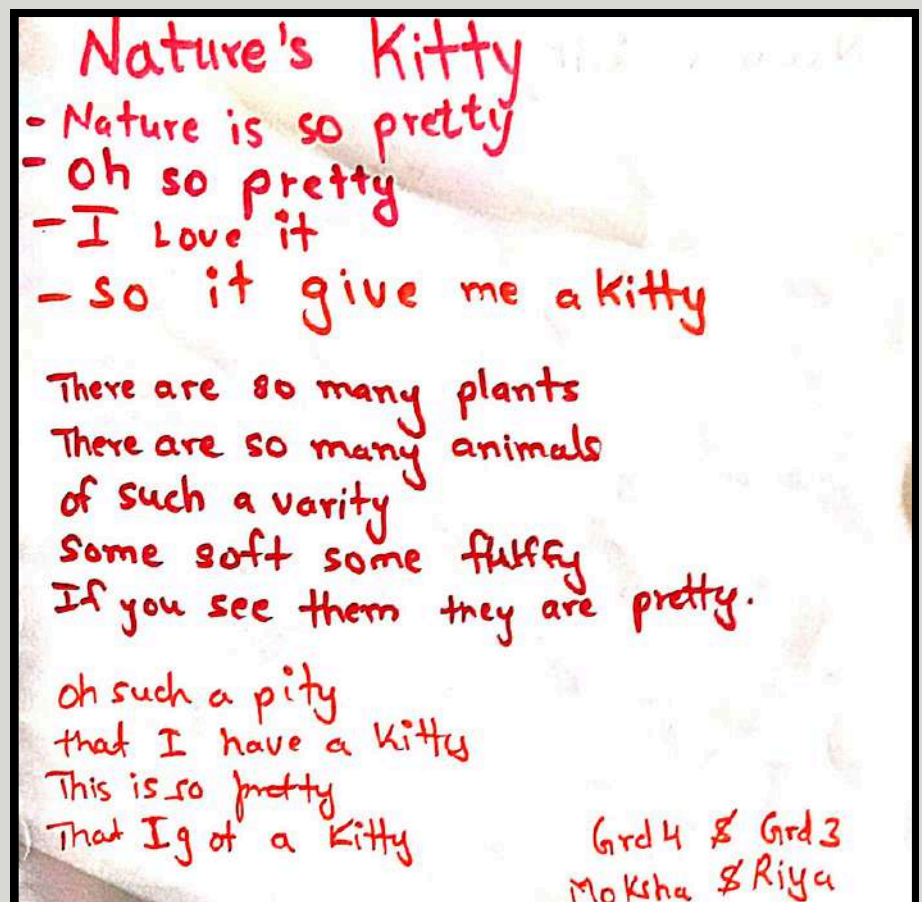 Nature's Kitty
- Nature is so pretty
- oh so pretty
- I Love it
- so it give me a kitty
There are so many plants
There are so many animals
of such a varity
some soft some fluffy
If you see them they are pretty.
oh such a pity
that I have a kitty
This is so pretty
That I got a kitty
Grd 4 & Grd 3
Moksha & Riya